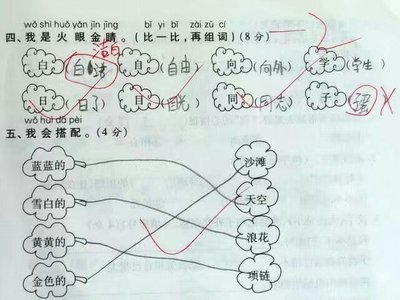 wǒ shì huǒ yǎn jīn jīng bǐ yi bǐ zài zǔ cí
四、我是火眼金睛。(比一比,再组词)(8分)
洁白
白 自(自由) 向(向外) 学(学生)
日 目(目光) 同(同志) 子
wǒ huì dā pèi
五、我会搭配。(4分)
蓝蓝的 沙滩
雪白的 天空
黄黄的 浪花
金色的 项链